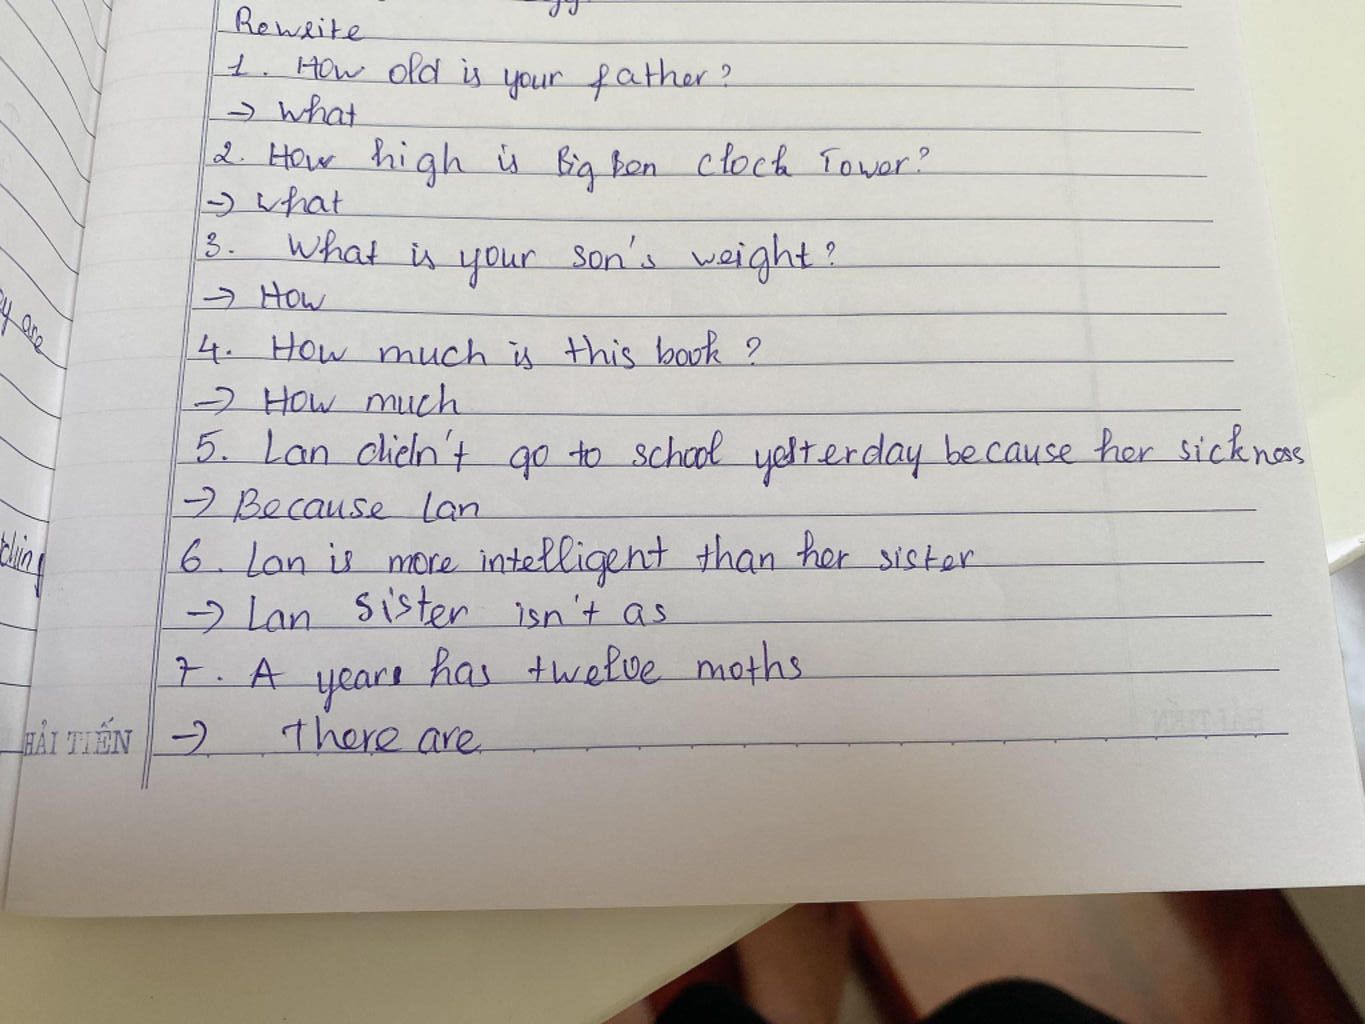 Rewrite
1. How old is your father?
→ What
2. How high is Big Ben clock Tower?
→ what
3. What is your son's weight?
→ How
4. How much is this book?
→ How much
5. Lan didn't go to school yesterday because her sickness
→ Because Lan
6. Lan is more intelligent than her sister
→ Lan sister isn't as
7. A years has twelve moths
→ There are
y are
ching
HẢI TIẾN